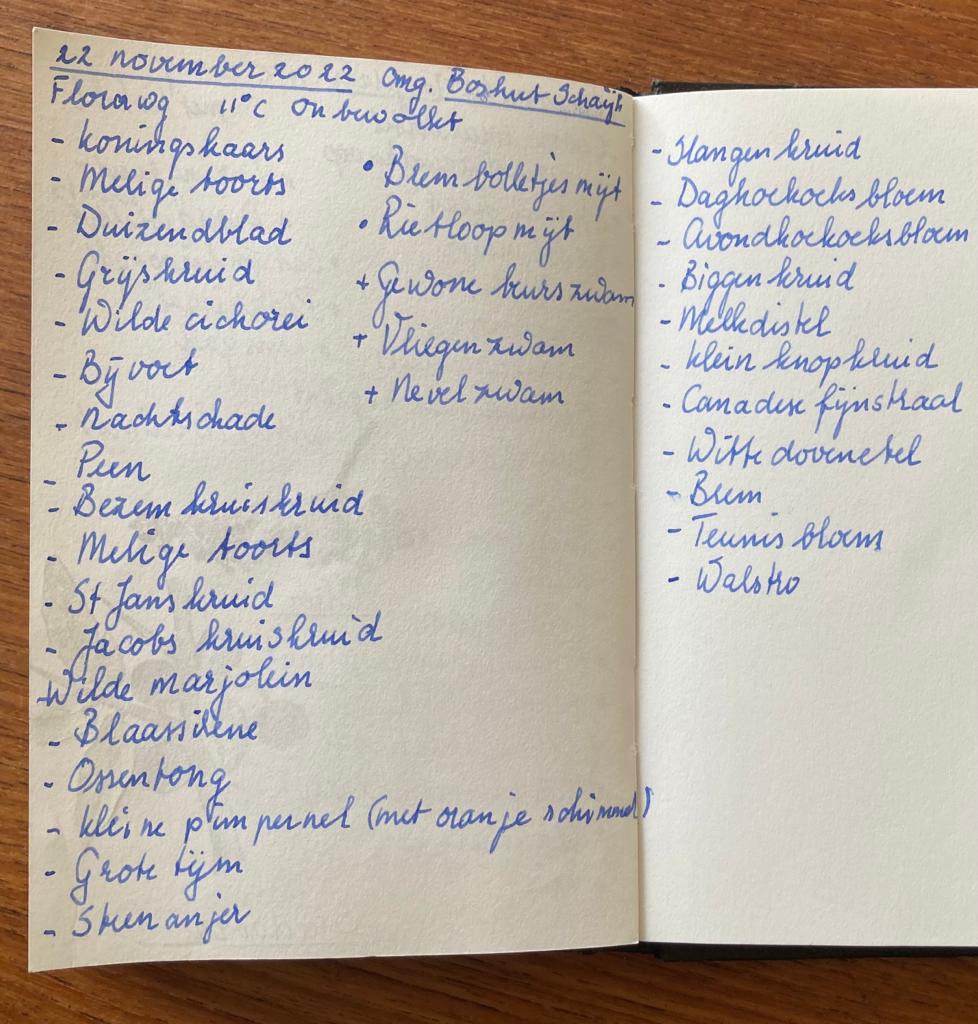 22 november 2022 Omg. Boshut Schaijk
Florawg 11°C onbewolkt
- koningskaars
- Melige toorts
- Duizendblad
- Grijskruid
- Wilde cichorei
- Bijvoet
- Nachtschade
- Peen
- Bezemkruiskruid
- Melige toorts
- St Janskruid
- Jacobs kruiskruid
- Wilde marjolein
- Blaassilene
- Ossentong
- kleine pimpernel (met oranje schimmel)
- Grote tijm
- Steenanjer
• Brembolletjesmijt
• Rietloopmijt
+ Gewone beurszwam
+ Vliegenzwam
+ Nevelzwam
- Slangenkruid
- Dagkoekoeksbloem
- Avondkoekoeksbloem
- Biggenkruid
- Melkdistel
- klein knopkruid
- Canadese fijnstraal
- Witte dovenetel
- Brem
- Teunisbloem
- Walstro